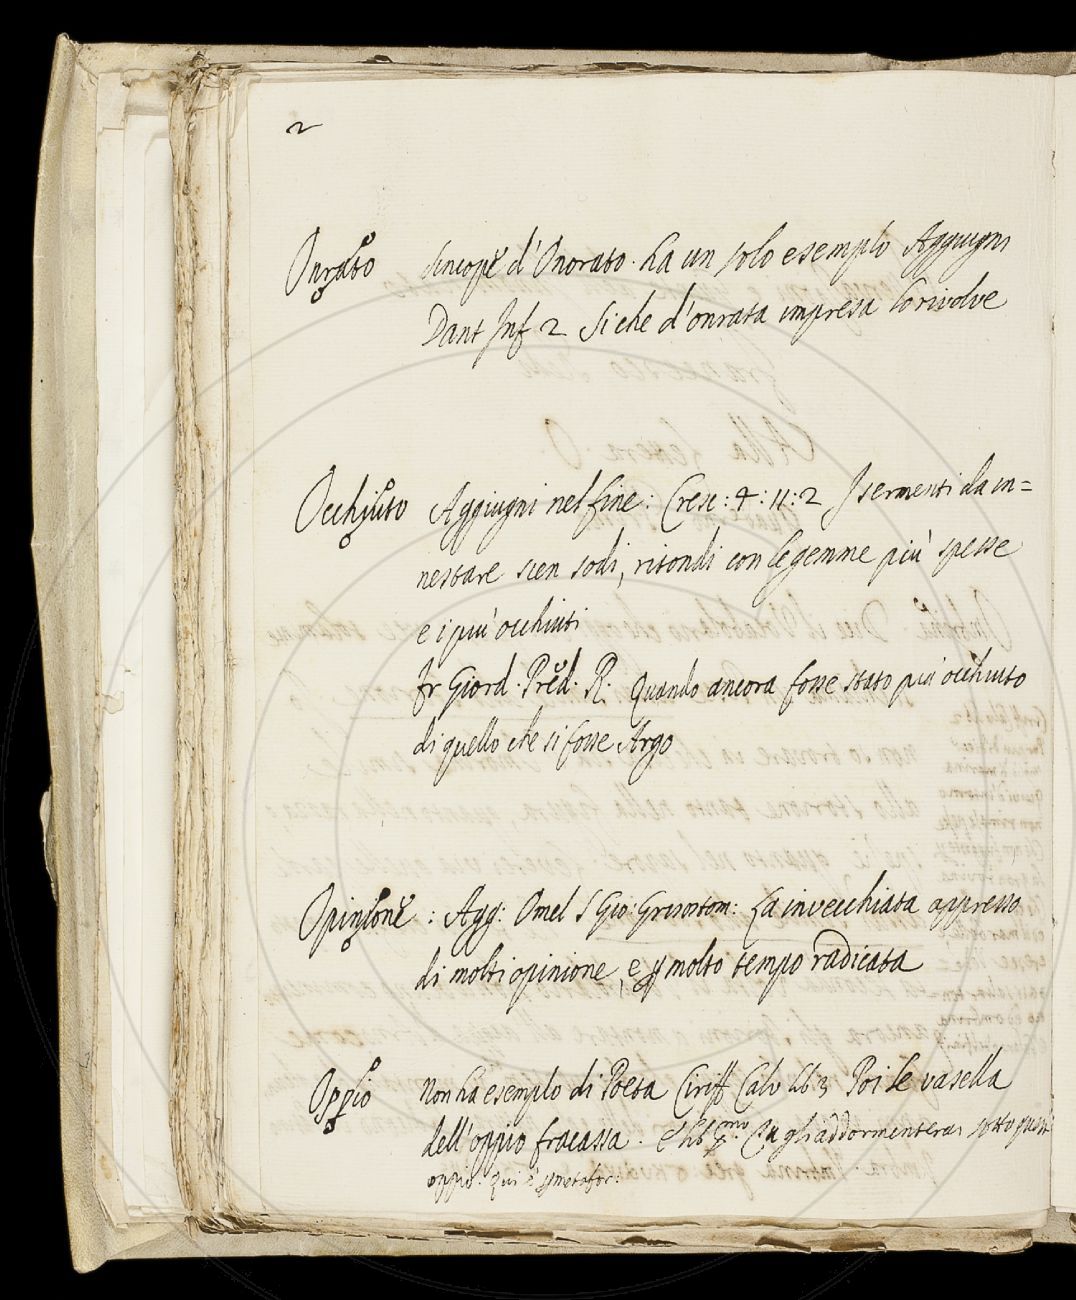 2
Onrato Sincope d'Onorato. ha un solo esempio Aggiugni
Dant Inf 2 Si che d'onrata impresa lo rivolve
Occhiuto Aggiugni nel fine: Cresc: 4: 11: 2 I sermenti da in=
nestare sien sodi, ritondi con le gemme più spesse
e i più occhiuti
Fr Giord. Pred. R. Quando ancora fosse stato più occhiuto
di quello che si fosse Argo
Opinione: Agg: Omel S Gio: Grisostom: La invecchiata appresso
di molti opinione, e p molto tempo radicata
Oppio Non ha esempio di Poeta Ciriff Calv lib 3 Poi le vasella
dell'oppio fracassa. e lib pmo. gli addormenterai sotto quest
oppio. qui è p metafor: